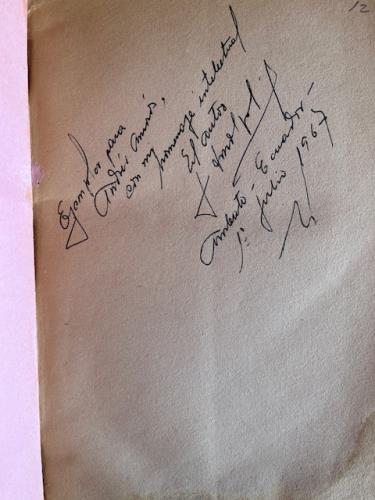 12
Ejemplar para
Andrés Amorós,
con mi homenaje intelectual
El autor
Ambato, Ecuador-
1º julio 1967